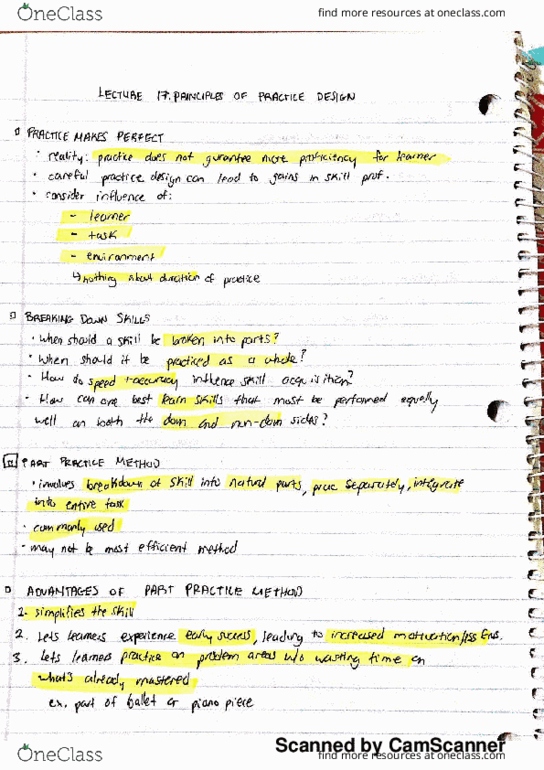 OneClass
find more resources at oneclass.com
LECTURE 17. PRINCIPLES OF PRACTICE DESIGN
PRACTICE MAKES PERFECT
• reality: practice does not gurantee more proficiency for learner
• careful practice design can lead to gains in skill prof.
• consider influence of:
- learner
- task
- environment
↳ nothing about duration of practice
BREAKING DOWN SKILLS
• when should a skill be broken into parts?
• when should it be practiced as a whole?
• How do speed + accuracy influence skill acquisition?
• How can one best learn skills that must be performed equally
well on both the dom and non-dom sides?
PART PRACTICE METHOD
• involves breakdown of skill into natural parts, prac separately, integrate
into entire task
• commonly used
• may not be most efficient method
ADVANTAGES OF PART PRACTICE METHOD
1. simplifies the skill
2. Lets learners experience early success, leading to increased motivation/
3. Lets learners practice on problem areas w/o wasting time on
what's already mastered
ex. part of ballet or piano piece
Scanned by CamScanner
OneClass
find more resources at oneclass.com